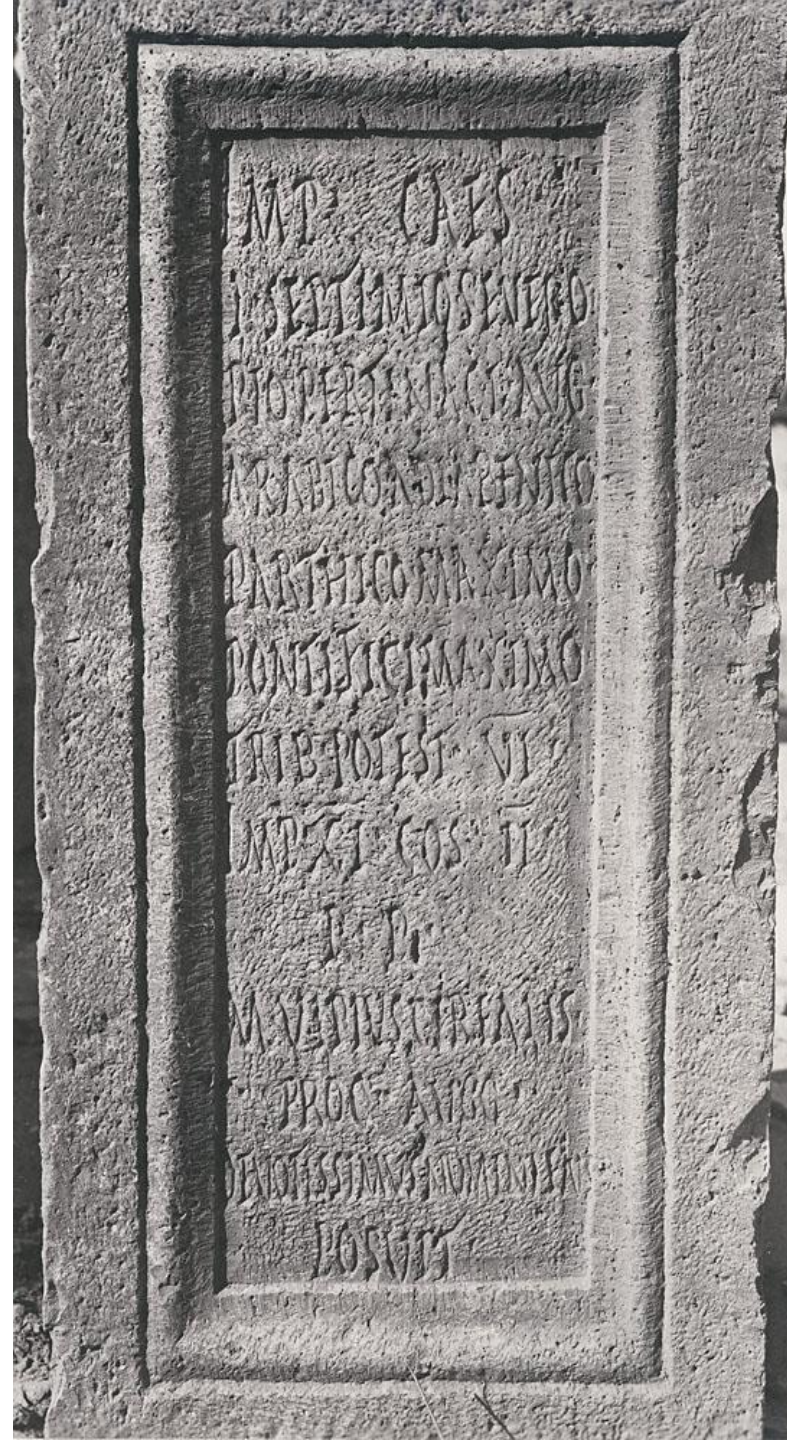 IMP CAES
L SEPTIMIO SEVERO
PIO PERTINACI AVG
ARABICO ADIABENICO
PARTHICO MAXIMO
PONTIFICI MAXIMO
TRIB POTEST VI
IMP XI COS II
P P
M VLPIVS CEREALIS
PROC AVGG
DEVOTISSIMVS NVMINI EIVS
POSVIT